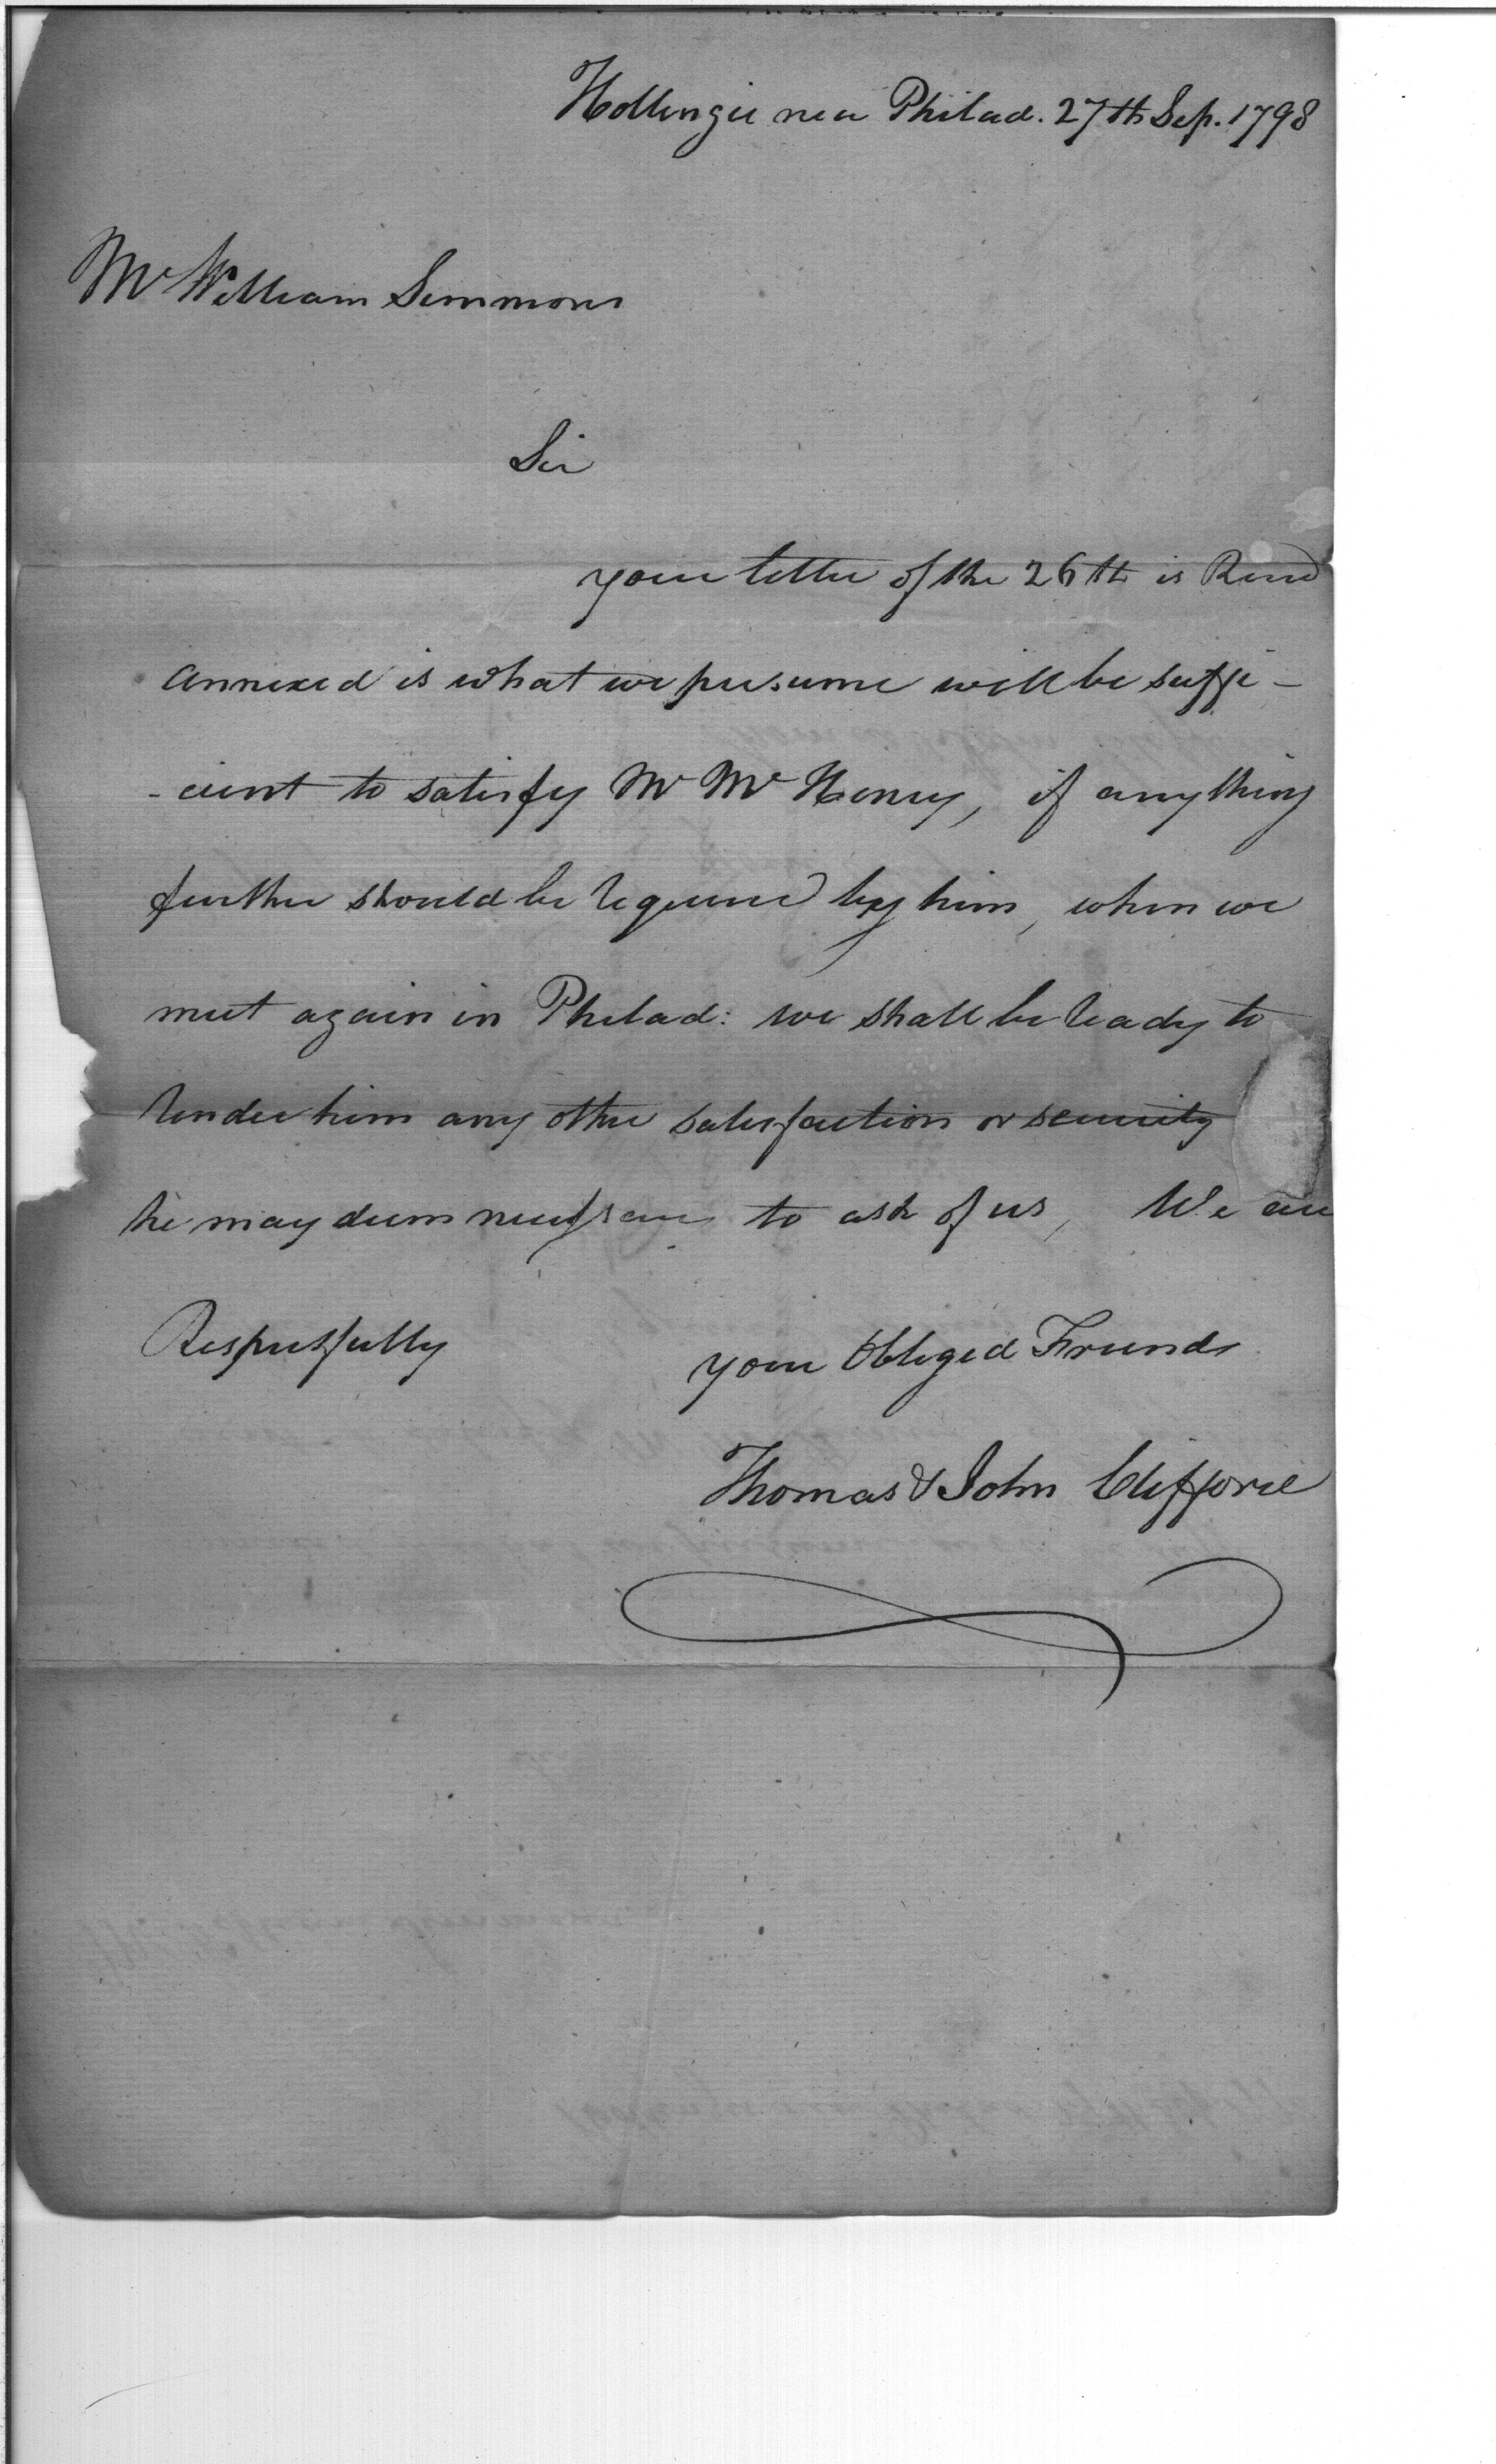 near Philad. 27th Sep. 1798
Mr William Simmons
Sir
your letter of the 26th is Recd
annexed is what we presume will be suffi-
-cient to satisfy Mr McHenry, if anything
further should be required by him, when we
meet again in Philad: we shall be ready to
render him any other satisfaction or security
he may deem necessary to ask of us, We are
Respectfully
your Obliged Friends
Thomas & John Clifford